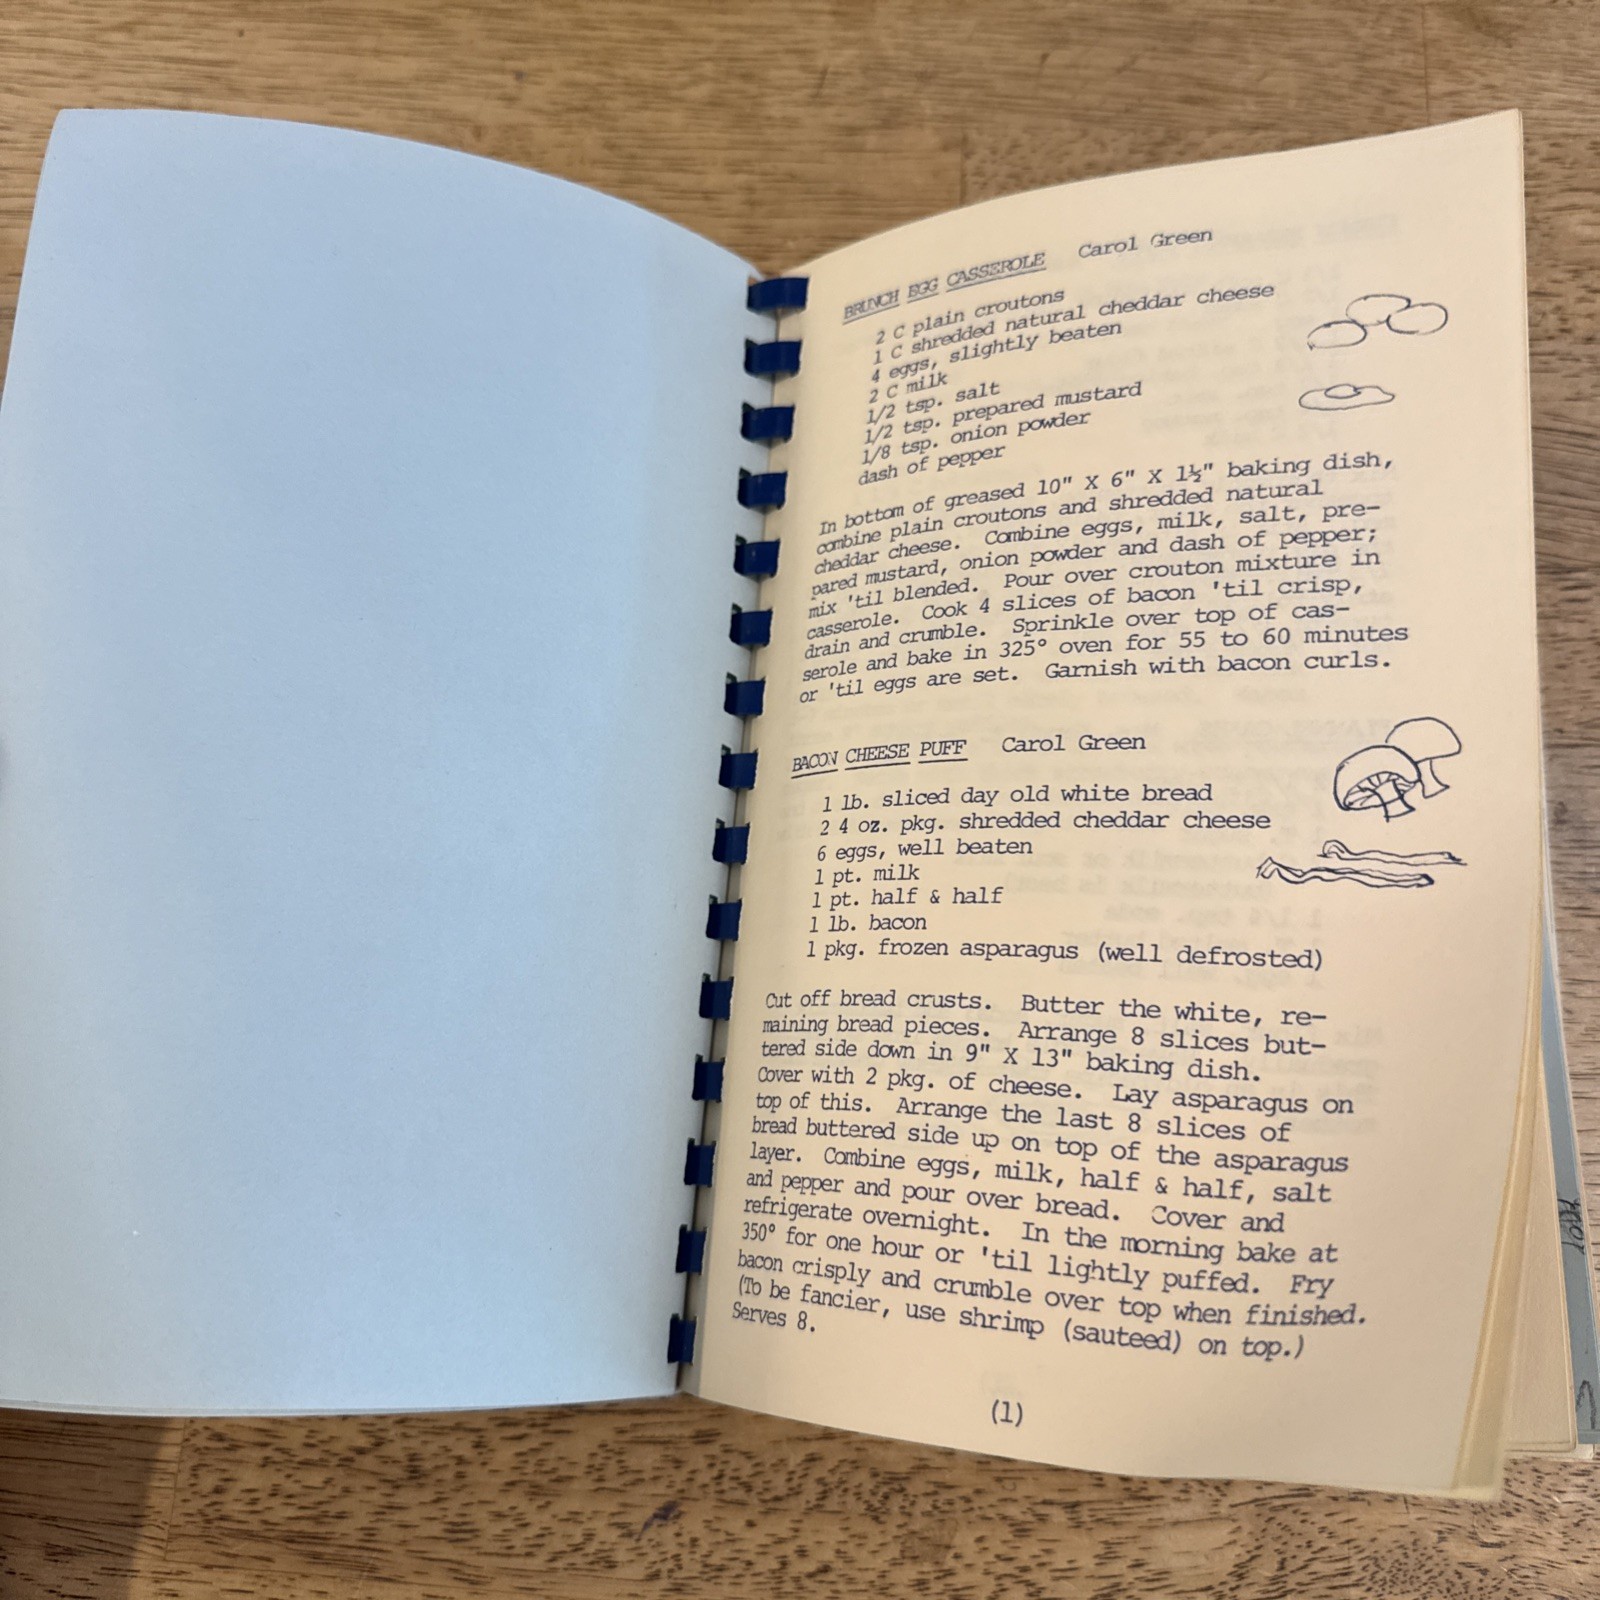 BRUNCH EGG CASSEROLE Carol Green
2 C plain croutons
1 C shredded natural cheddar cheese
4 eggs, slightly beaten
2 C milk
1/2 tsp. salt
1/2 tsp. prepared mustard
1/8 tsp. onion powder
dash of pepper
In bottom of greased 10" X 6" X 1½" baking dish,
combine plain croutons and shredded natural
cheddar cheese. Combine eggs, milk, salt, pre-
pared mustard, onion powder and dash of pepper;
mix 'til blended. Pour over crouton mixture in
casserole. Cook 4 slices of bacon 'til crisp,
drain and crumble. Sprinkle over top of cas-
serole and bake in 325° oven for 55 to 60 minutes
or 'til eggs are set. Garnish with bacon curls.
BACON CHEESE PUFF Carol Green
1 lb. sliced day old white bread
2 4 oz. pkg. shredded cheddar cheese
6 eggs, well beaten
1 pt. milk
1 pt. half & half
1 lb. bacon
1 pkg. frozen asparagus (well defrosted)
Cut off bread crusts. Butter the white, re-
maining bread pieces. Arrange 8 slices but-
tered side down in 9" X 13" baking dish.
Cover with 2 pkg. of cheese. Lay asparagus on
top of this. Arrange the last 8 slices of
bread buttered side up on top of the asparagus
layer. Combine eggs, milk, half & half, salt
and pepper and pour over bread. Cover and
refrigerate overnight. In the morning bake at
350° for one hour or 'til lightly puffed. Fry
bacon crisply and crumble over top when finished.
(To be fancier, use shrimp (sauteed) on top.)
Serves 8.
(1)